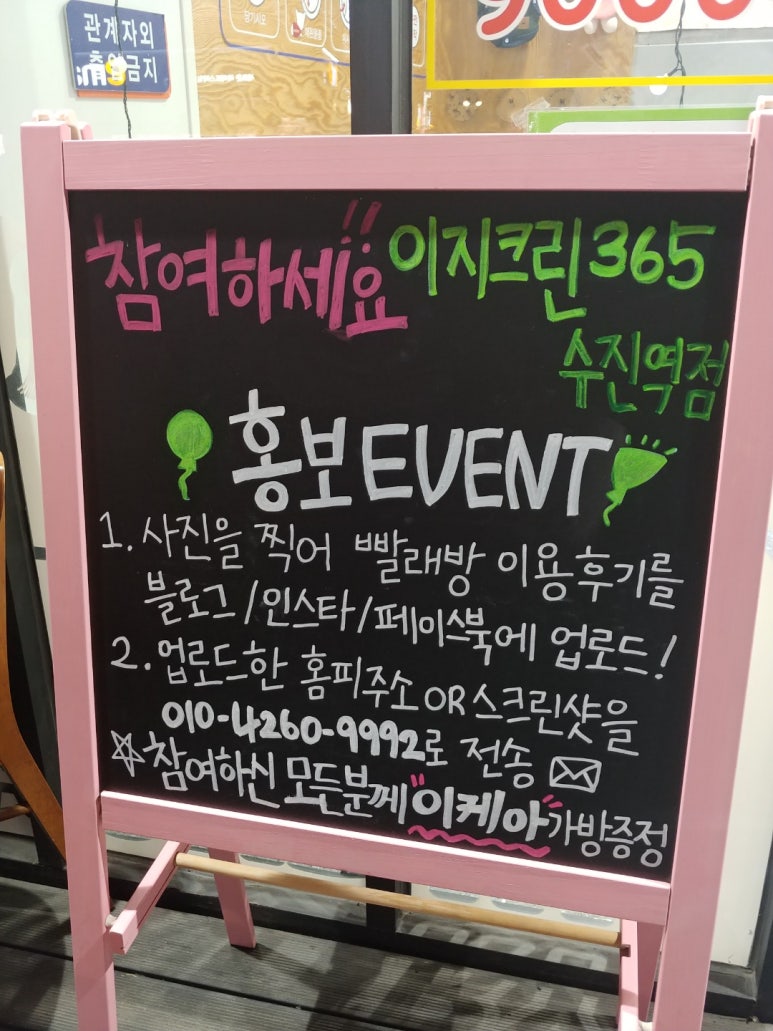 관계자외
출입금지
당기시오
9000
참여하세요!!
이지크린365
수진역점
홍보EVENT
1. 사진을 찍어 빨래방 이용후기를
블로그/인스타/페이스북에 업로드!
2. 업로드한 홈피주소OR스크린샷을
010-4260-9992로 전송
☆참여하신 모든분께 "이케아"가방증정